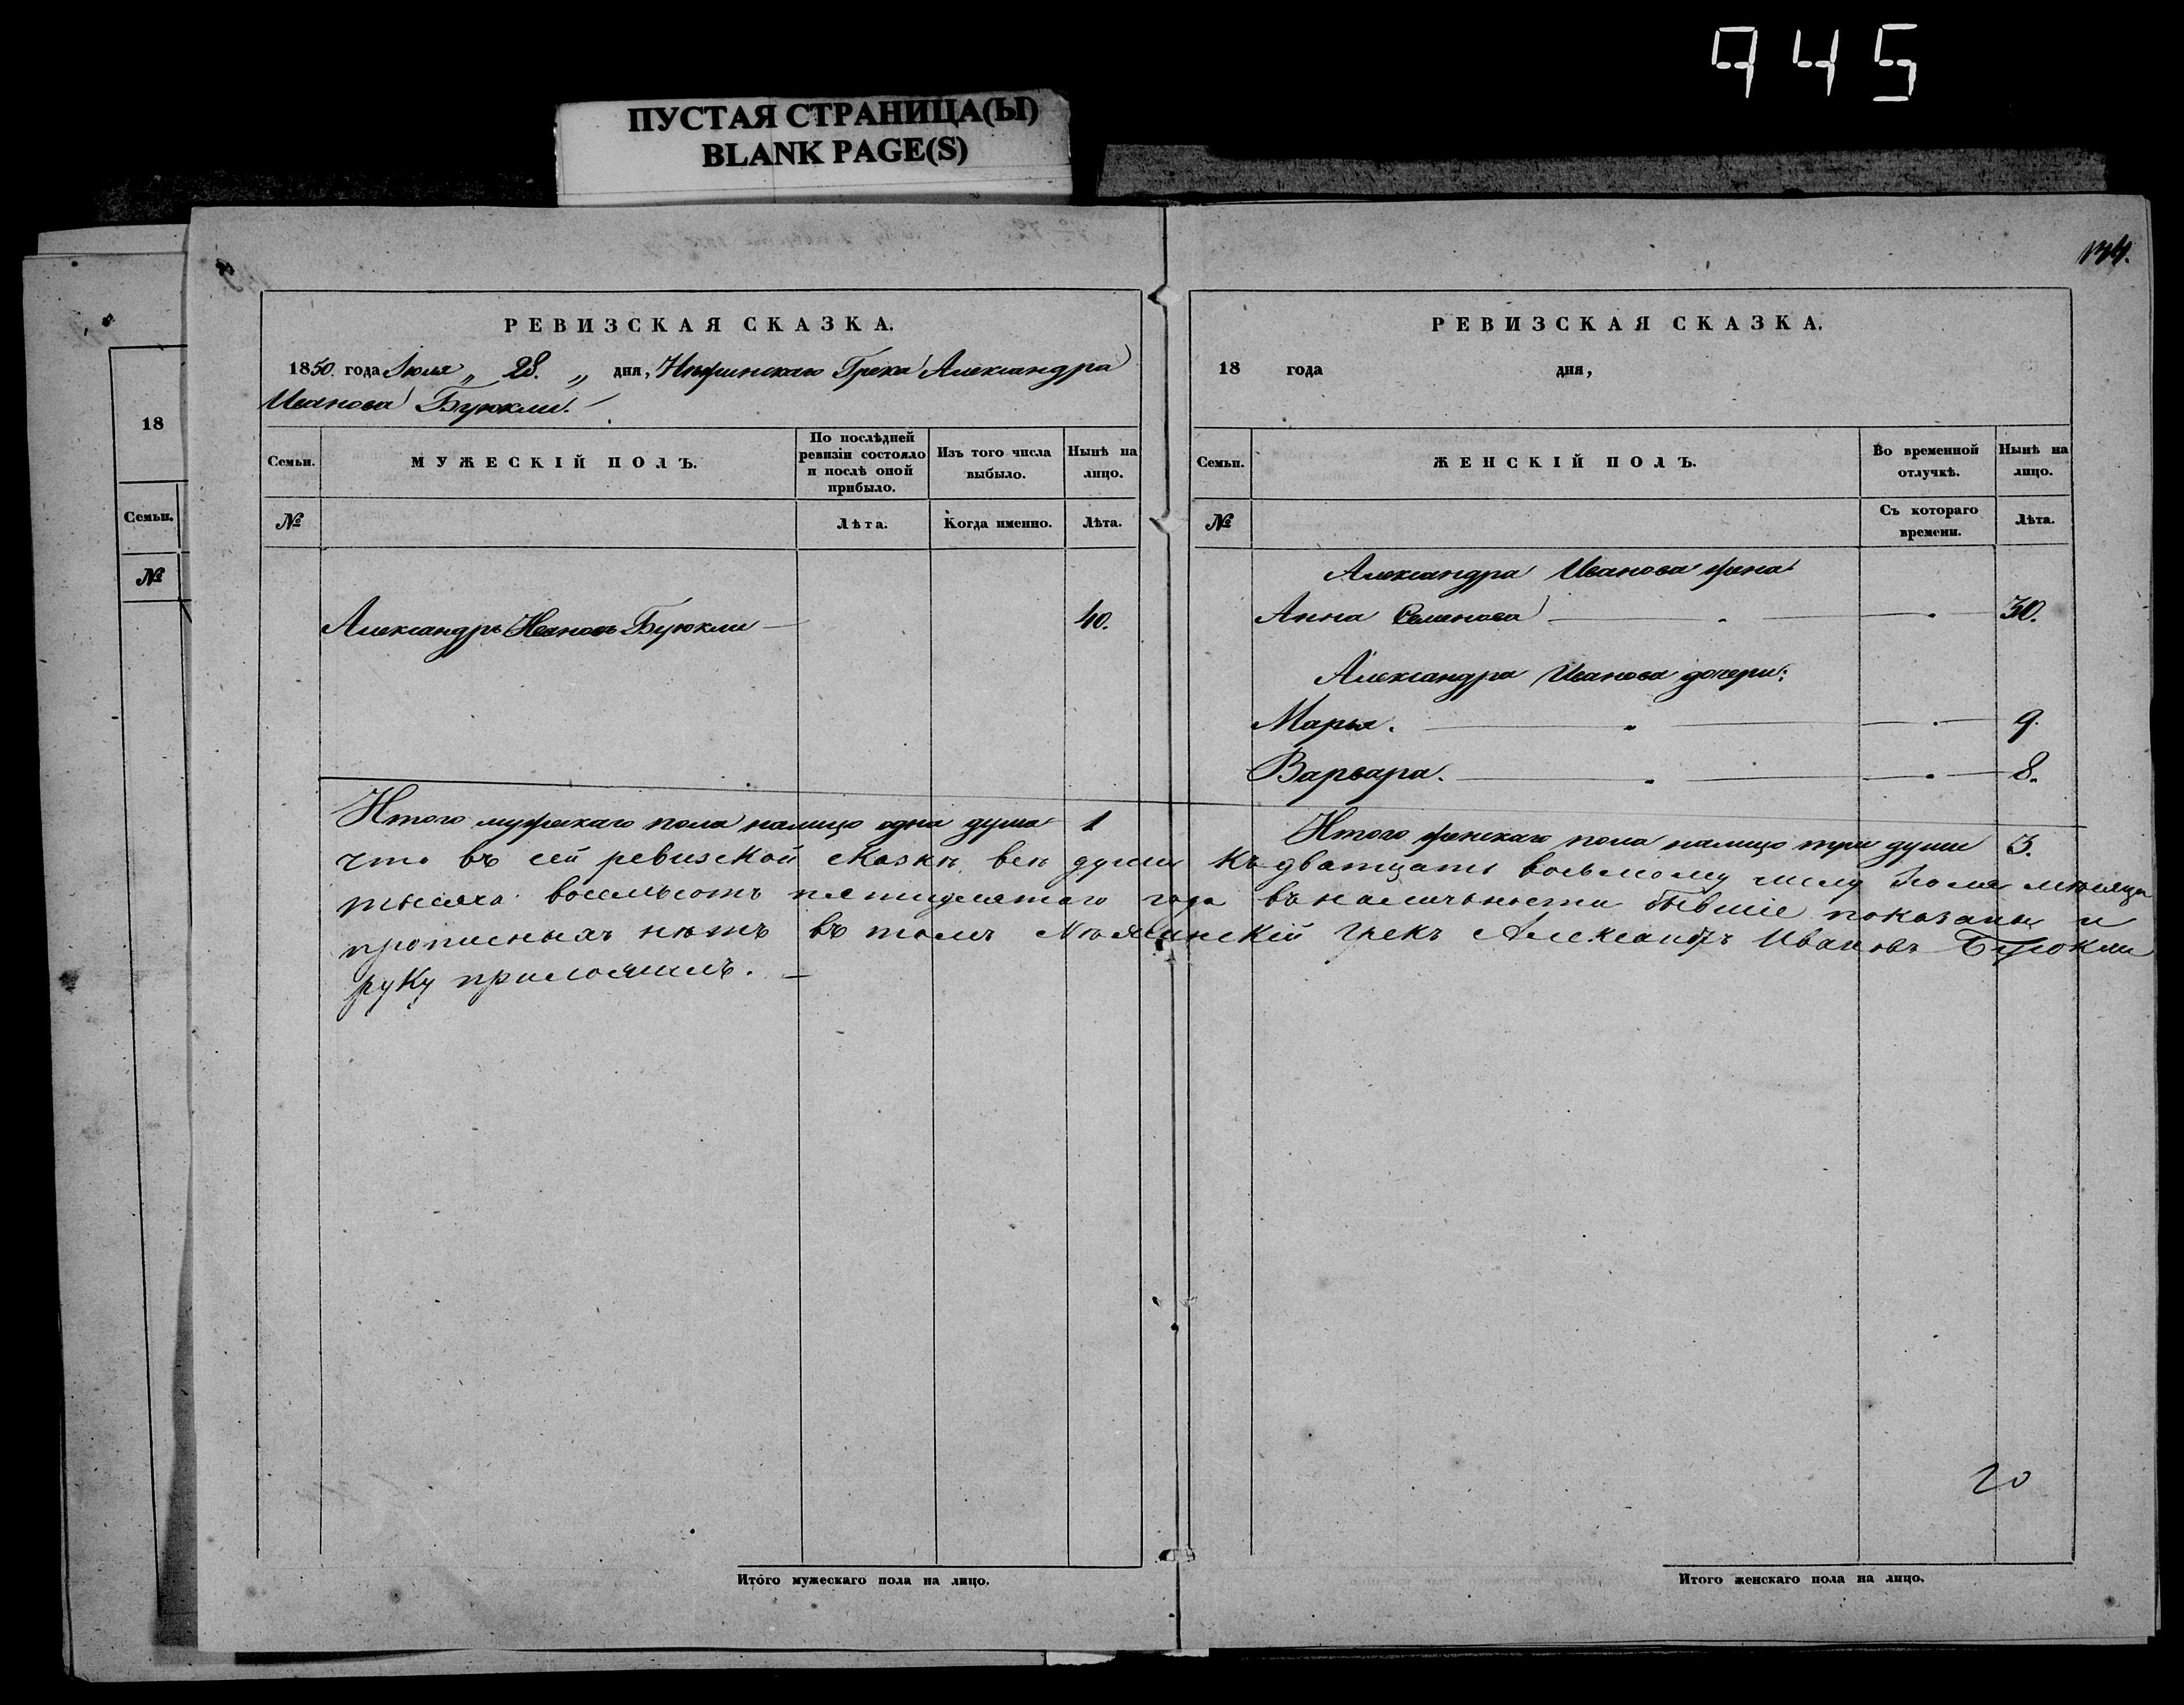 945
ПУСТАЯ СТРАНИЦА(Ы)
BLANK PAGE(S)
134.
РЕВИЗСКАЯ СКАЗКА.
1850. года Іюля „ 28. „ дня, Нѣжинскаго Грека Александра
Иванова Буюкли.
Семьи.
МУЖЕСКІЙ ПОЛЪ.
По послѣдней ревизіи состояло и послѣ оной прибыло.
Изъ того числа выбыло.
Нынѣ на лицо.
№
Лѣта.
Когда именно.
Лѣта.
Александръ Ивановъ Буюкли — 40.
Итого мужескаго пола налицо одна душа 1
РЕВИЗСКАЯ СКАЗКА.
18 года дня,
Семьи.
ЖЕНСКІЙ ПОЛЪ.
Во временной отлучкѣ.
Нынѣ на лицо.
№
Съ котораго времени.
Лѣта.
Александра Иванова жена
Анна Семенова — 30.
Александра Иванова дочери:
Марья. — 9.
Варвара. — 8.
Итого женскаго пола налицо три души 3.
что въ сей ревизской сказкѣ всѣ души къ дватцать восьмому числу Іюля мѣсяца
тысяча восемьсотъ пятидесятаго года въ наличьности бывшіе показаны и
прописныхъ нѣтъ въ томъ Нѣжинскій грекъ Александръ Ивановъ Буюкли
руку приложилъ. —
20
Итого мужескаго пола на лицо.
Итого женскаго пола на лицо.
18
Семьи.
№